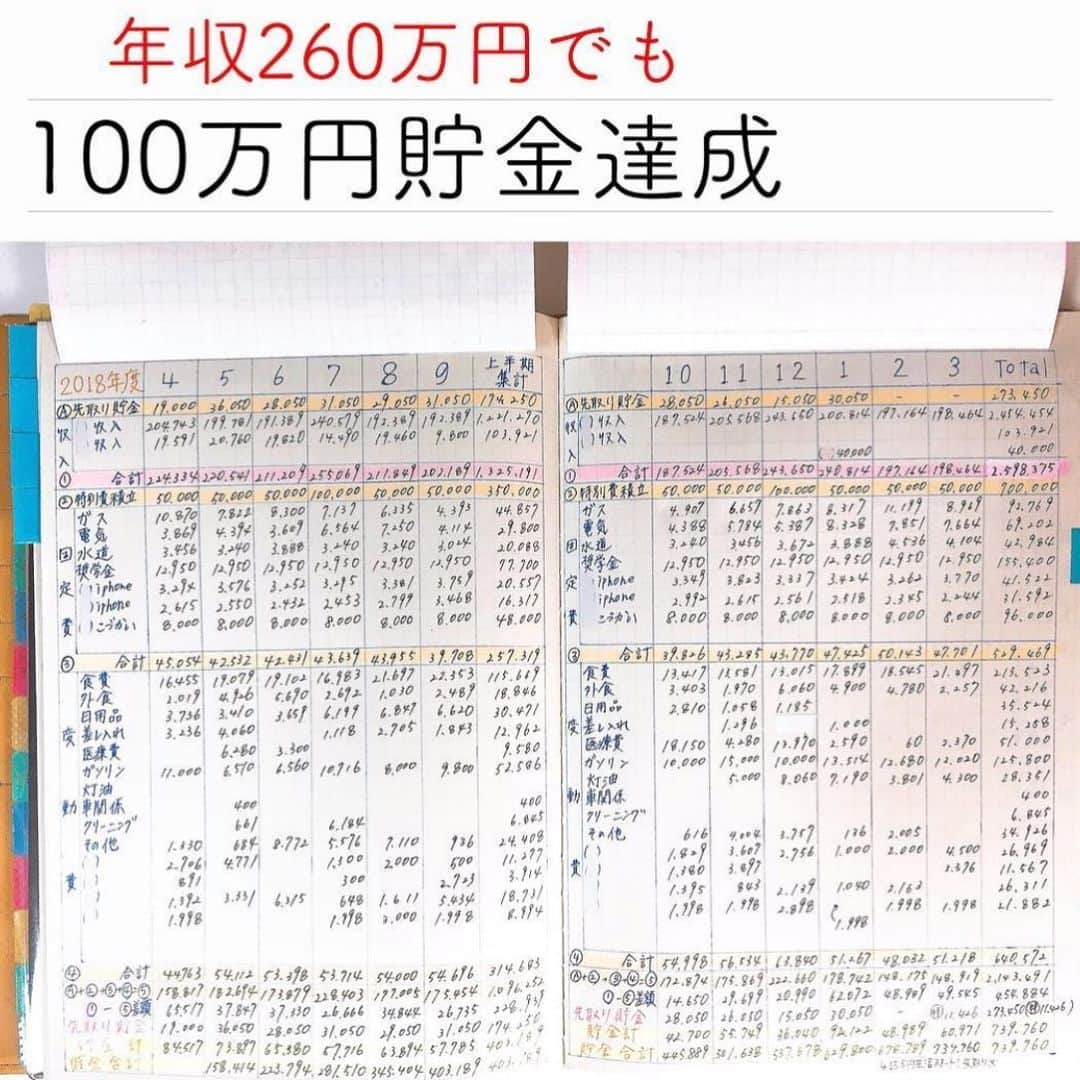 年収260万円でも
100万円貯金達成
2018年度 4 5 6 7 8 9 上半期集計
Ⓐ先取り貯金 19.000 36.050 28.050 31.050 29.050 31.050 174.250
収 ( )収入 204.743 199.781 191.389 240.579 192.389 192.389 1.221.270
( )収入 19.591 20.760 19.820 14.490 19.460 9.800 103.921
入
① 合計 224.334 220.541 211.209 255.069 211.849 202.189 1.325.191
②特別費積立 50.000 50.000 50.000 100.000 50.000 50.000 350.000
ガス 10.870 7.822 8.300 7.137 6.335 4.393 44.857
電気 3.869 4.394 3.609 6.564 7.250 4.114 29.800
固 水道 3.456 3.240 3.888 3.240 3.240 3.024 20.088
奨学金 12.950 12.950 12.950 12.950 12.950 12.950 77.700
定 ( )iphone 3.294 3.576 3.252 3.295 3.381 3.759 20.557
( )iphone 2.615 2.550 2.432 2.453 2.799 3.468 16.317
費 ( )こづかい 8.000 8.000 8.000 8.000 8.000 8.000 48.000
③ 合計 45.054 42.532 42.431 43.639 43.955 39.708 257.319
食費 16.455 19.079 19.102 16.983 21.697 22.353 115.669
外食 2.019 4.926 5.690 2.692 1.030 2.489 18.846
日用品 3.736 3.410 3.659 6.199 6.847 6.620 30.471
変 差し入れ 3.236 4.060 1.118 2.705 1.843 12.962
医療費 6.280 3.300 9.580
ガソリン 11.000 6.510 6.560 10.716 8.000 9.800 52.586
灯油
動 車関係 400 400
クリーニング 661 6.184 6.845
その他 1.330 684 8.772 5.576 7.110 936 24.408
( ) 2.706 4.771 1.300 2.000 500 11.277
費 ( ) 891 300 2.723 3.914
( ) 1.392 3.331 6.315 648 1.611 5.434 18.731
( ) 1.998 1.998 3.000 1.998 8.994
④ 合計 44.763 54.112 53.398 53.714 54.000 54.696 314.683
Ⓐ+②+③+④=⑤ 158.817 182.694 173.879 228.403 177.005 175.454 1.096.252
①-⑤差額 65.517 37.847 37.330 26.666 34.844 26.735 228.939
先取り貯金 19.000 36.050 28.050 31.050 29.050 31.050 174.250
貯金計 84.517 73.897 65.380 57.716 63.894 57.785 403.189
貯金合計 158.414 223.794 281.510 345.404 403.189 403.189
10 11 12 1 2 3 Total
Ⓐ先取り貯金 28.050 26.050 15.050 30.050 - - 273.450
収 ( )収入 187.524 205.568 243.650 200.814 197.164 198.464 2.454.454
( )収入 103.921
入 ( )40.000 40.000
① 合計 187.524 205.568 243.650 240.814 197.164 198.464 2.598.375
②特別費積立 50.000 50.000 100.000 50.000 50.000 50.000 700.000
ガス 4.907 6.657 7.863 8.317 11.199 8.969 92.769
電気 4.388 5.784 5.387 8.328 7.851 7.664 69.202
固 水道 3.240 3.456 3.672 3.888 4.536 4.104 42.984
奨学金 12.950 12.950 12.950 12.950 12.950 12.950 155.400
定 ( )iphone 3.349 3.823 3.337 3.424 3.262 3.770 41.522
( )iphone 2.992 2.615 2.561 2.518 2.345 2.244 31.592
費 こづかい 8.000 8.000 8.000 8.000 8.000 8.000 96.000
③ 合計 39.826 43.285 43.770 47.425 50.143 47.701 529.469
食費 13.417 13.581 13.015 17.899 18.545 21.397 213.523
外食 3.403 1.970 6.060 4.900 4.780 2.257 42.216
日用品 2.810 1.058 1.185 35.524
変 差し入れ 1.296 1.000 15.258
医療費 18.150 4.280 13.970 2.590 60 2.370 51.000
ガソリン 10.000 15.000 10.000 13.514 12.680 12.020 125.800
灯油 5.000 8.060 7.190 3.801 4.300 28.351
動 車関係 400
クリーニング 6.845
その他 616 4.004 3.757 136 2.005 34.926
( ) 1.829 3.607 2.756 1.000 2.000 4.500 26.969
費 ( ) 1.380 3.897 2.376 11.567
( ) 1.395 843 2.139 1.040 2.163 26.311
( ) 1.998 1.998 2.898 1.998 1.998 1.998 21.882
④ 合計 54.998 56.534 63.840 51.267 48.032 51.218 640.572
Ⓐ+②+③+④=⑤ 172.874 175.869 222.660 178.742 148.175 148.919 2.143.491
①-⑤差額 14.650 29.699 20.990 62.072 48.989 49.545 454.884
先取り貯金 28.050 26.050 15.050 30.050 11.426 273.450
貯金計 42.700 55.749 36.040 92.122 48.989 60.971 739.760
貯金合計 445.889 501.638 537.678 629.800 678.789 739.760 739.760